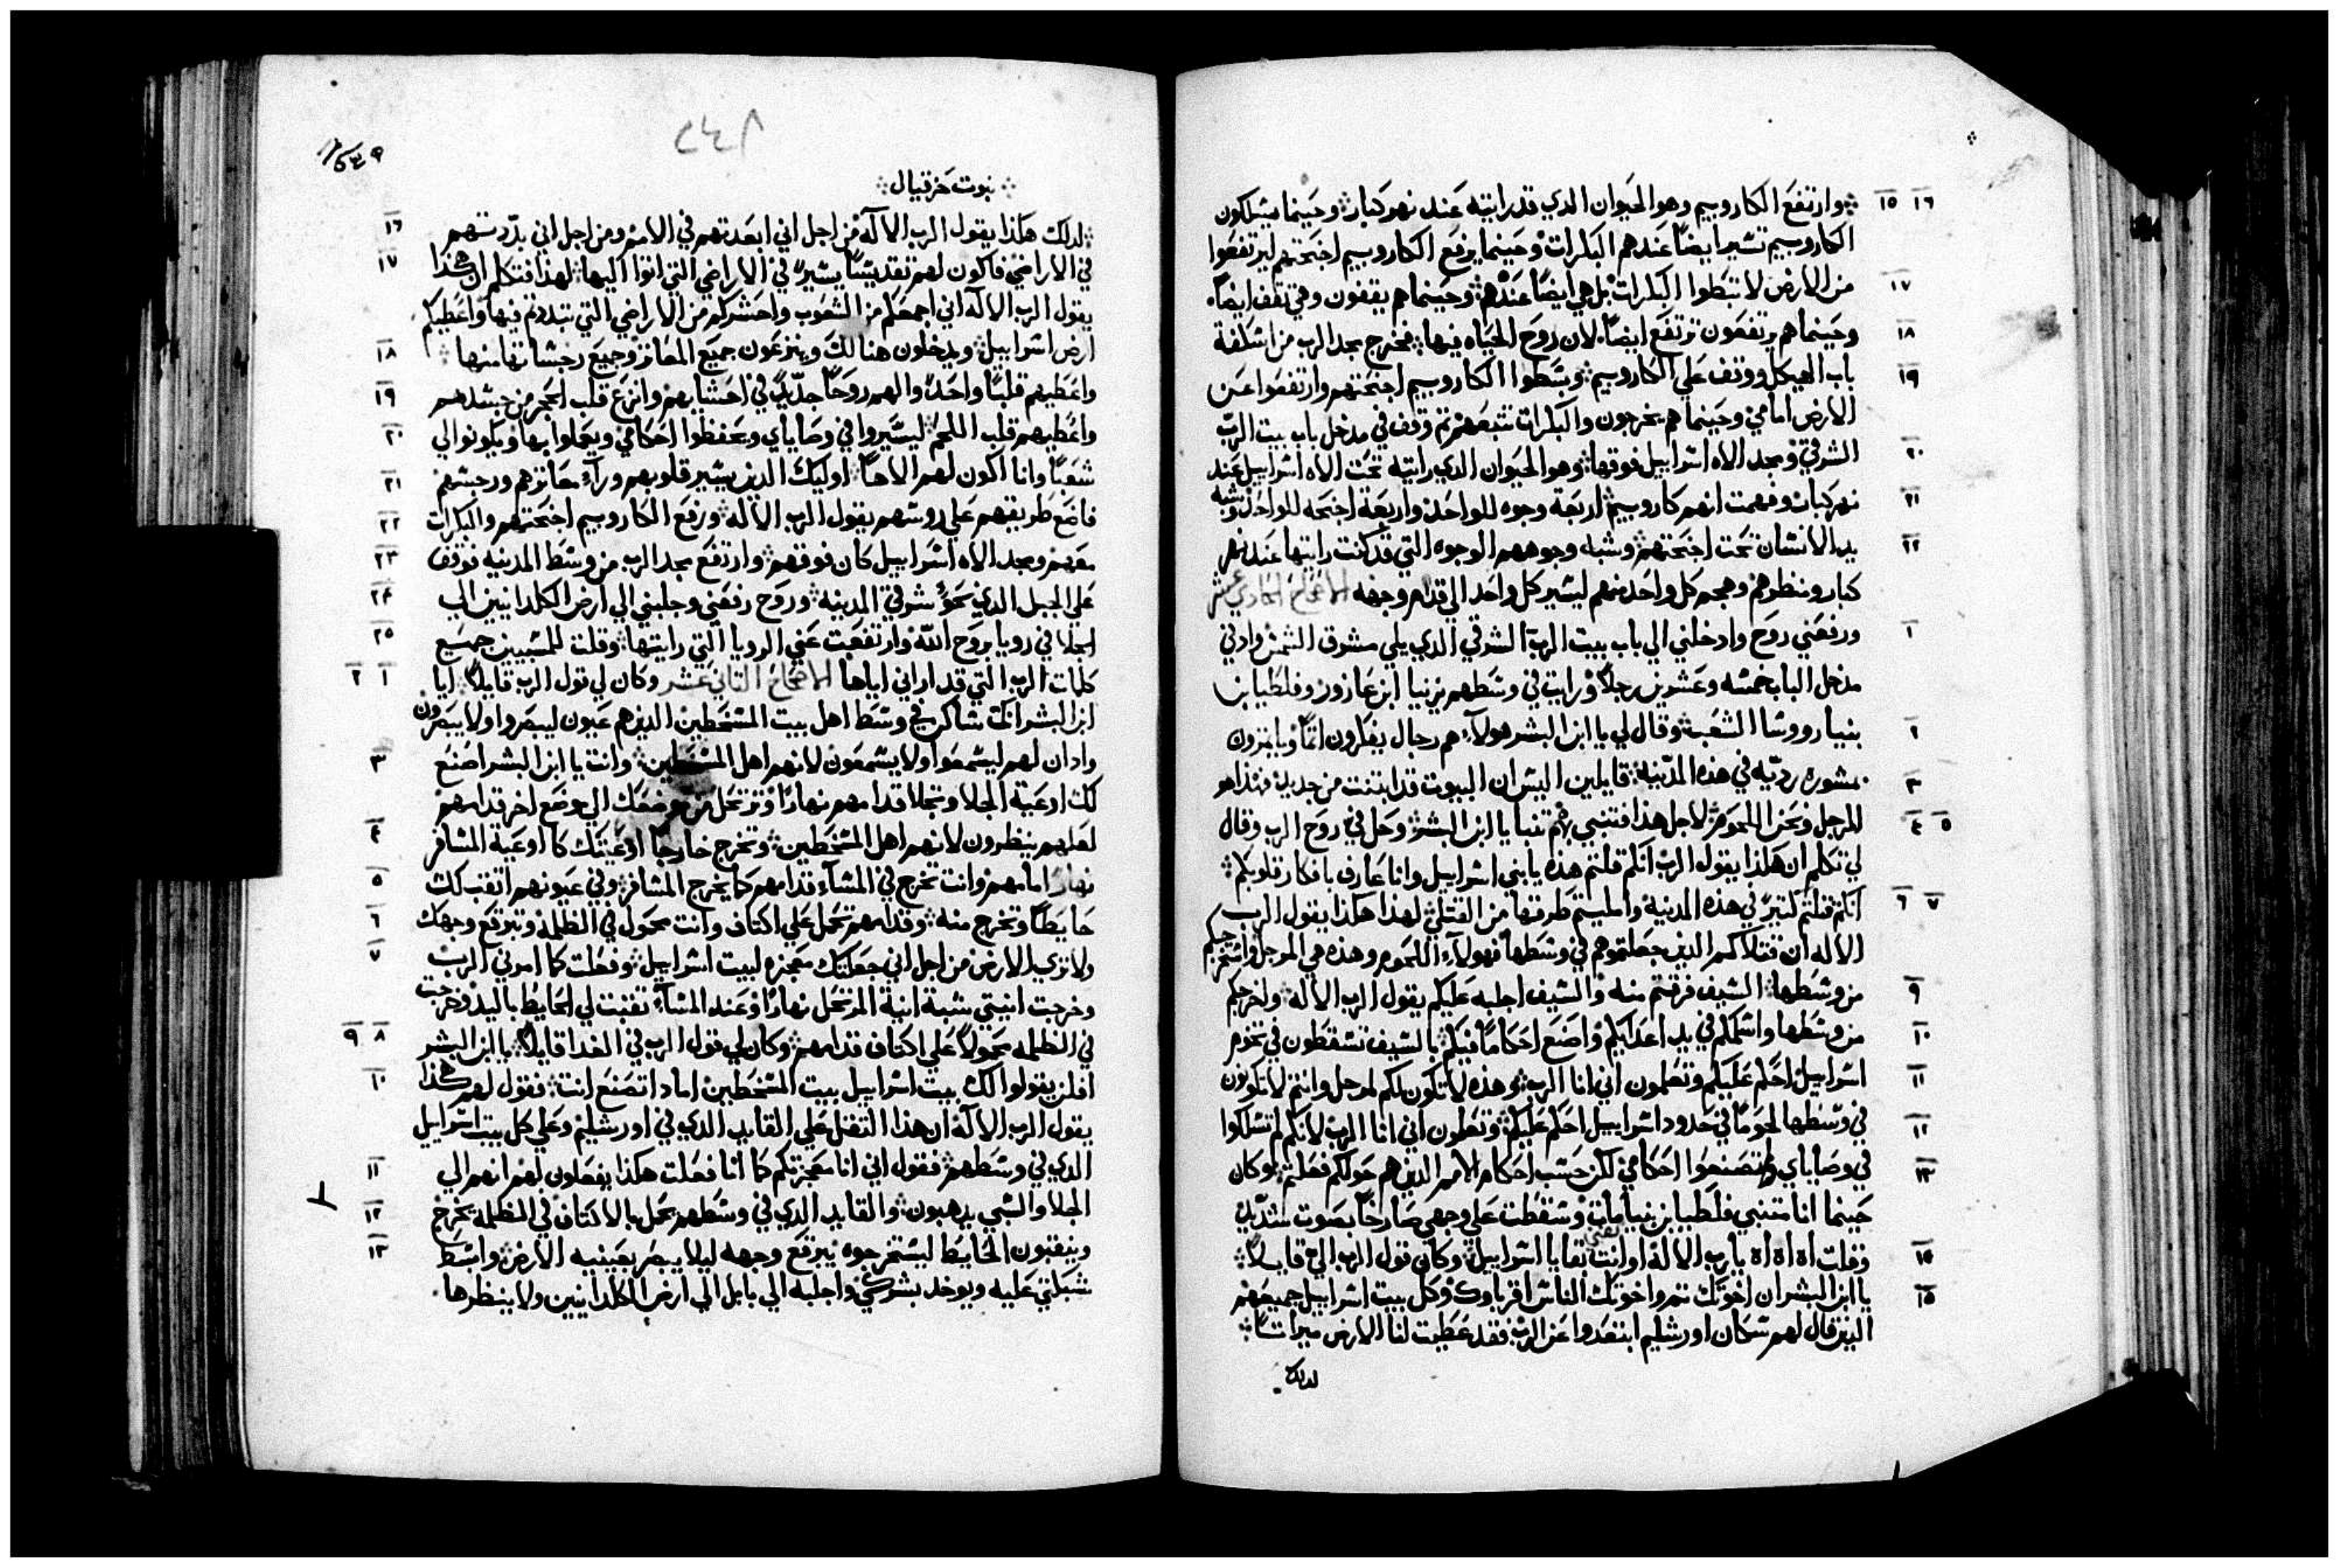 ١٥ ١٦ وارتفع الكاروبيم وهو الحيوان الدي قد رايته عند نهر كبار وحينما يسلكون
الكاروبيم تسير ايضاً عندهم البكرات وحينما يرفع الكاروبيم اجنحتهم ليرتفعوا
١٧ من الارض لا تبطوا البكرات بل هي ايضاً عندهم وحينما هم يقفون وهي تقف ايضاً
١٨ وحينما هم يرتفعون ترتفع ايضاً لان روح الحياه فيها فخرج مجد الرب من اسكفة
١٩ باب الهيكل ووقف علي الكاروبيم وبسطوا الكاروبيم اجنحتهم وارتفعوا عن
الارض امامي وحينما هم يخرجون والبكرات تتبعهم ثم وقف في مدخل باب بيت الرب
٢٠ الشرقي ومجد الاه اسراييل فوقها وهو الحيوان الدي رايته تحت الاه اسراييل عند
٢١ نهر كبار وفهمت انهم كاروبيم اربعة وجوه للواحد واربعة اجنحه للواحد وشبه
٢٢ يد الانسان تحت اجنحتهم وشبه وجوههم الوجوه التي قد كنت رايتها عند نهر
كبار ومنظرهم وهجم كل واحد منهم ليسير كل واحد الي قدام وجهه الاصحاح الحادي عشر
١ ورفعني روح وادخلني الي باب بيت الرب الشرقي الدي يلي مشرق الشمس وادني
مدخل الباب خمسه وعشرين رجلاً ورايت في وسطهم يزنيا ابن عازور وفلطيا بن
٢ بنيا رووسا الشعب وقال لي يا ابن البشر هولآء هم رجال يفكرون اثماً ويامرون
٣ بمشوره رديه في هذه المدينة قايلين اليس ان البيوت قد ابتنت من جديد فهذا هو
٤ ٥ المرجل ونحن اللحوم لاجل هذا فتنبي بهم تنبا يا ابن البشر وحل في روح الرب وقال
لي تكلم ان هكذا يقول الرب انكم قلتم هذه يا بني اسراييل وانا عارف بافكار قلوبكم
٦ ٧ انكم قتلتم كتيرً في هذه المدينة وامليتم طرقها من القتلي لهذا هكذا يقول الرب
الاله ان قتلاكم الدين جعلتموهم في وسطها فهولآء اللحوم وهذه هي المرجل واخرجكم
٩ من وسطها السيف فزعتم منه والسيف اجلبه عليكم يقول الرب الاله واخرجكم
١٠ من وسطها واسلمكم في يد اعدايكم واصنع احكاماً فيكم بالسيف تسقطون في تخوم
١١ اسراييل احكم عليكم وتعلمون اني انا الرب وهذه لا تكون لكم لمرجل وانتم لا تكونون
١٢ في وسطها لحوماً في حدود اسراييل احكم عليكم وتعلمون اني انا الرب لانكم لم تسلكوا
١٣ في وصاياي ولم تصنعوا احكامي لكن حسب احكام الامم الدين هم حولكم فعلتم وكان
حينما انا متنبي فلطيا بن بنيا مات وسقطت علي وجهي صارخاً بصوت شديد
١٤ وقلت اه اه اه يا رب الاله او انت تفني بقايا اسراييل وكان قول الرب الي قايلاً
١٥ يا ابن البشر ان اخوتك نعم واخوتك الناس اقرباوك وكل بيت اسراييل جميعهم
الدين قال لهم سكان اورشليم ابتعدوا عن الرب فقد عطيت لنا الارض ميراتاً
لدلك
٢٤٨
نبوت حزقيال
١٦ لدلك هكذا يقول الرب الاله من اجل اني ابعدتهم في الامم ومن اجل اني بددتهم
١٧ في الاراضي فاكون لهم تقديساً يسيرً في الاراضي التي اتوا اليها لهذا فتكلم ان هكذا
يقول الرب الاله اني اجمعكم من الشعوب واحشركم من الاراضي التي تبددتم فيها واعطيكم
١٨ ارض اسراييل ويدخلون هنالك وينزعون جميع المعاثر وجميع رجساتها منها
١٩ واعطيهم قلباً واحداً والهم روحاً جديداً في احشايهم وانزع قلب الحجر من جسدهم
٢٠ واعطيهم قلب اللحم ليسيروا في وصاياي ويحفظوا احكامي ويعملوا بها ويكونوا لي
٢١ شعباً وانا اكون لهم الاهاً اوليك الدين يسير قلوبهم ورآء معاثرهم ورجسهم
٢٢ فاضع طريقهم علي روسهم يقول الرب الاله ورفع الكاروبيم اجنحتهم والبكرات
٢٣ معهم ومجد الاه اسراييل كان فوقهم وارتفع مجد الرب من وسط المدينه فوقف
٢٤ علي الجبل الدي نحو شرقي المدينه وروح رفعني وجلبني الي ارض الكلدانيين الي
٢٥ الجلا في رويا بروح الله وارتفعت عني الرويا التي رايتها وقلت للمسبيين جميع
١ ٢ كلمات الرب التي قد اراني اياها الاصحاح التاني عشر وكان لي قول الرب قايلاً ايا
ابن البشر انك ساكن في وسط اهل بيت المسخطين الدين هم عيون ليبصروا ولا يبصرون
٣ وادان لهم ليسمعوا ولا يسمعون لانهم اهل المسخطين وانت يا ابن البشر اصنع
لك اوعية الجلا وتجلا قدامهم نهاراً وترتحل من موضعك الي موضع اخر قدامهم
٤ لعلهم ينظرون لانهم اهل المسخطين وتخرج خارجاً اوعيتك كاوعية المسافر
٥ نهاراً امامهم وانت تخرج في المسآء قدامهم كما يخرج المسافر وفي عيونهم اتقب لك
٦ حايطاً وتخرج منه وقدامهم تحمل علي اكتاف وانت محمول في الظلمه وتبرقع وجهك
٧ ولا تري الارض من اجل اني جعلتك معجزه لبيت اسراييل وفعلت كما امرني الرب
وخرجت انيتي شبة انية المرتحل نهاراً وعند المسآء تقبت لي الحايط باليد وخرجت
٨ ٩ في الظلمه محمولاً علي اكتاف قدامهم وكان لي قول الرب في الغدا قايلاً يا ابن البشر
١٠ افلن يقولوا لك بيت اسراييل بيت المسخطين امادا تصنع انت فقول لهم هكذا
يقول الرب الاله ان هذا التقل علي القايد الدي في اورشليم وعلي كل بيت اسراييل
١١ الدي في وسطهم فقول اني انا معجزتكم كما انا فعلت هكذا يفعلون لهم انهم الي
١٢ الجلا والسبي يدهبون والقايد الدي في وسطهم يحمل بالاكتاف في الظلمه يخرج
١٣ وينقبون الحايط ليستخرجوه يبرقع وجهه ليلا يبصر بعينيه الارض وابسط
شبكتي عليه ويوخد بشركي واجلبه الي بابل الي ارض الكلدانيين ولا ينظرها